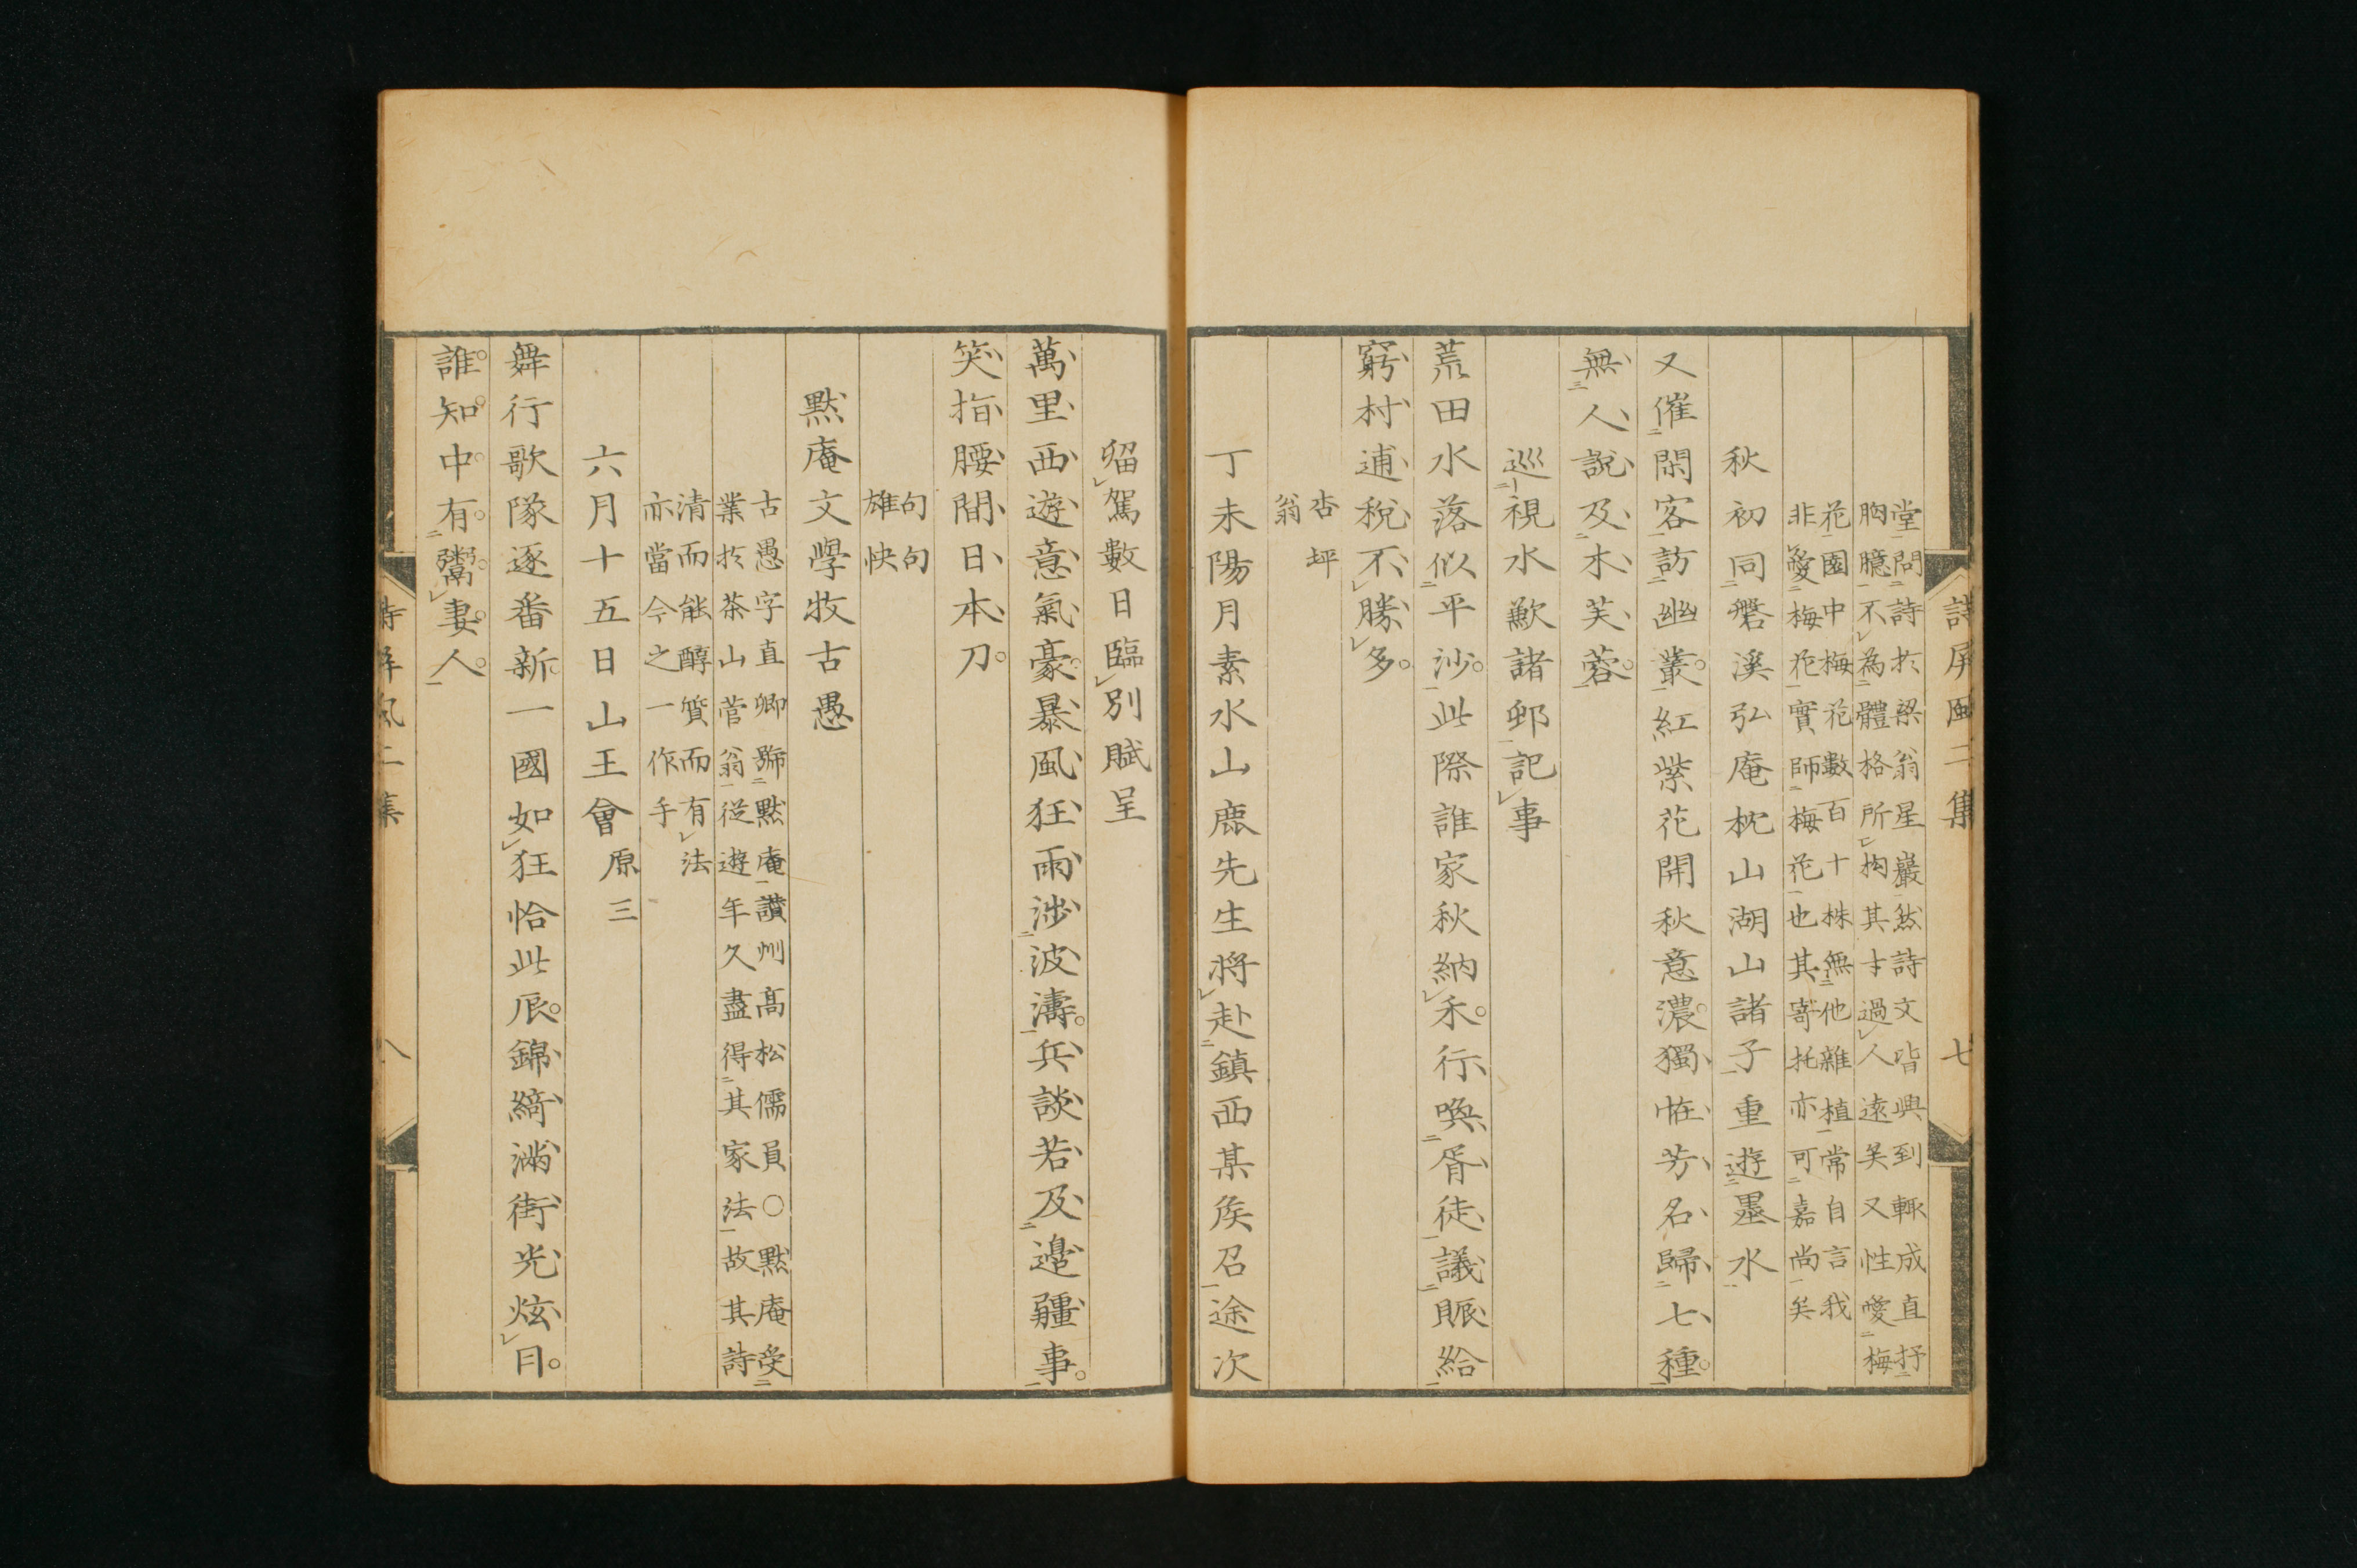 詩屏風二集
七
堂問詩於梁翁星巖然詩文皆興到輒成直抒
胸臆不為體格所拘其才過人遠矣又性愛梅
花園中梅花數百十株無他雜植常自言我
非愛梅花實師梅花也其寄托亦可嘉尚矣
秋初同磐溪弘庵枕山湖山諸子重遊墨水
又催閑客訪幽叢紅紫花開秋意濃獨恠芳名歸七種
無人說及木芙蓉
巡視水歉諸邨記事
荒田水落似平沙此際誰家秋納禾行喚胥徒議賑給
窮村逋稅不勝多
杏坪
翁
丁未陽月素水山鹿先生將赴鎮西某矦召途次
留駕數日臨別賦呈
萬里西遊意氣豪暴風狂雨涉波濤兵談若及邊疆事
笑指腰間日本刀
句句
雄快
默庵文學牧古愚
古愚字直卿號默庵讚州高松儒員○默庵受
業於茶山菅翁從遊年久盡得其家法故其詩
清而能醇質而有法
亦當今之一作手
六月十五日山王會原三
舞行歌隊逐番新一國如狂恰此辰錦綺滿街光炫目
誰知中有鬻妻人
詩屏風二集
八